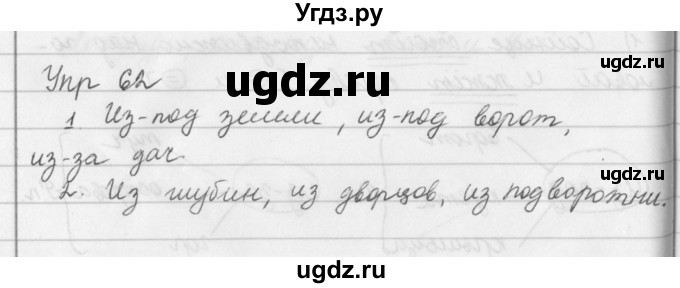 Угдз.ру
ugdz.ru
Упр 62
ugdz.ru
ugdz.ru
1. Из-под земли, из-под ворот,
из-за дач
2. Из глубин, из дворцов, из подворотни.
ugdz.ru
ugdz.ru